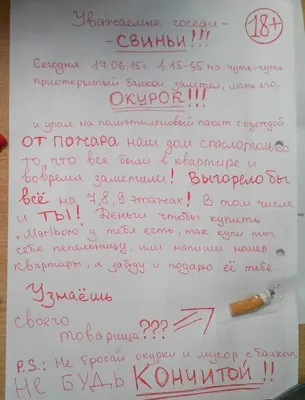 Уважаемые соседи -
- СВИНЬИ!!!
18+
Сегодня 17.06.15г. в 15-55 на чуть-чуть
приоткрытый балкон залетел, мать его,
ОКУРОК!!!
и упал на полиэтиленовый пакет с одеждой
ОТ ПОЖАРА наш дом спасло только
то, что все были в квартире и
вовремя заметили! Выгорело бы
всё на 7,8,9 этажах! В том числе
и ТЫ! Деньги чтобы купить
"Marlboro" у тебя есть, так купи ты
себе пепельницу, или напиши номер
квартиры, я зайду и подарю её тебе.
Узнаёшь
своего
товарища???
P.S.: Не бросай окурки и мусор с балкона,
НЕ БУДЬ КОНЧИТОЙ!!